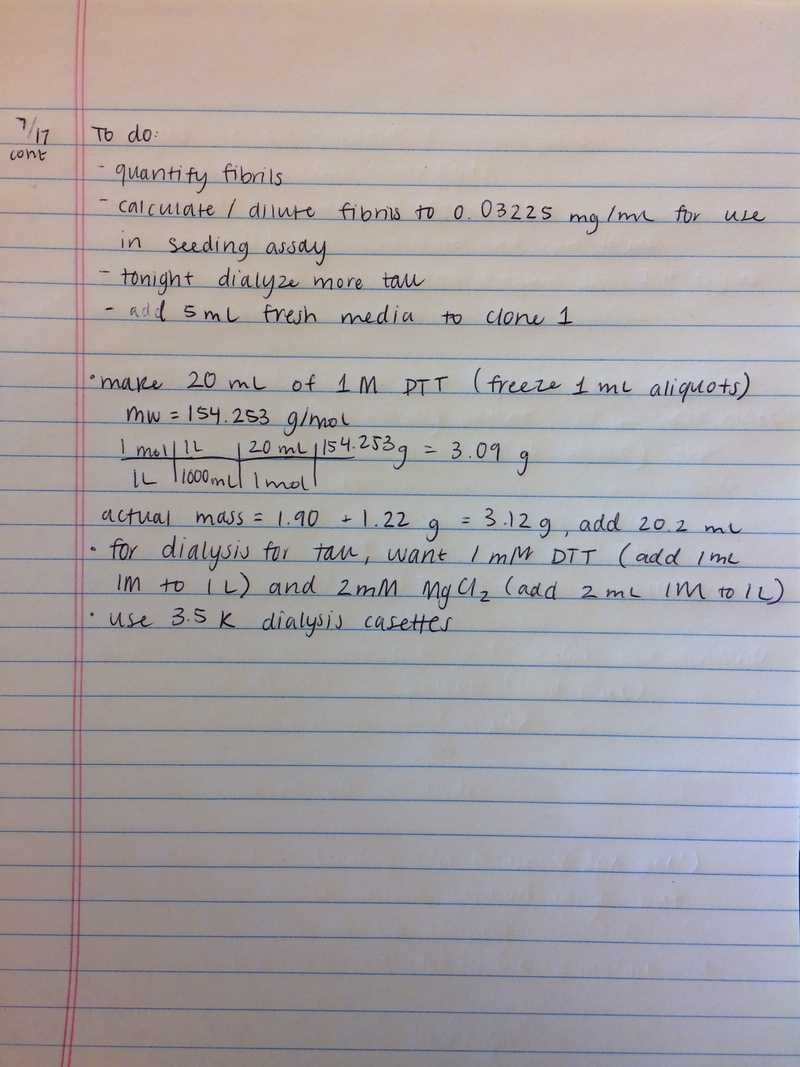 7/17
cont
To do:
- quantify fibrils
- calculate / dilute fibrils to 0.03225 mg/mL for use
in seeding assay
- tonight dialyze more tau
- add 5 mL fresh media to clone 1
• make 20 mL of 1 M DTT (freeze 1 mL aliquots)
MW = 154.253 g/mol
1 mol | 1L | 20 mL | 154.253g = 3.09 g
1L | 1000mL | 1mol |
actual mass = 1.90 + 1.22 g = 3.12g, add 20.2 mL
• for dialysis for tau, want 1 mM DTT (add 1mL
1M to 1 L) and 2mM MgCl₂ (add 2 mL 1M to 1L)
• use 3.5 K dialysis casettes